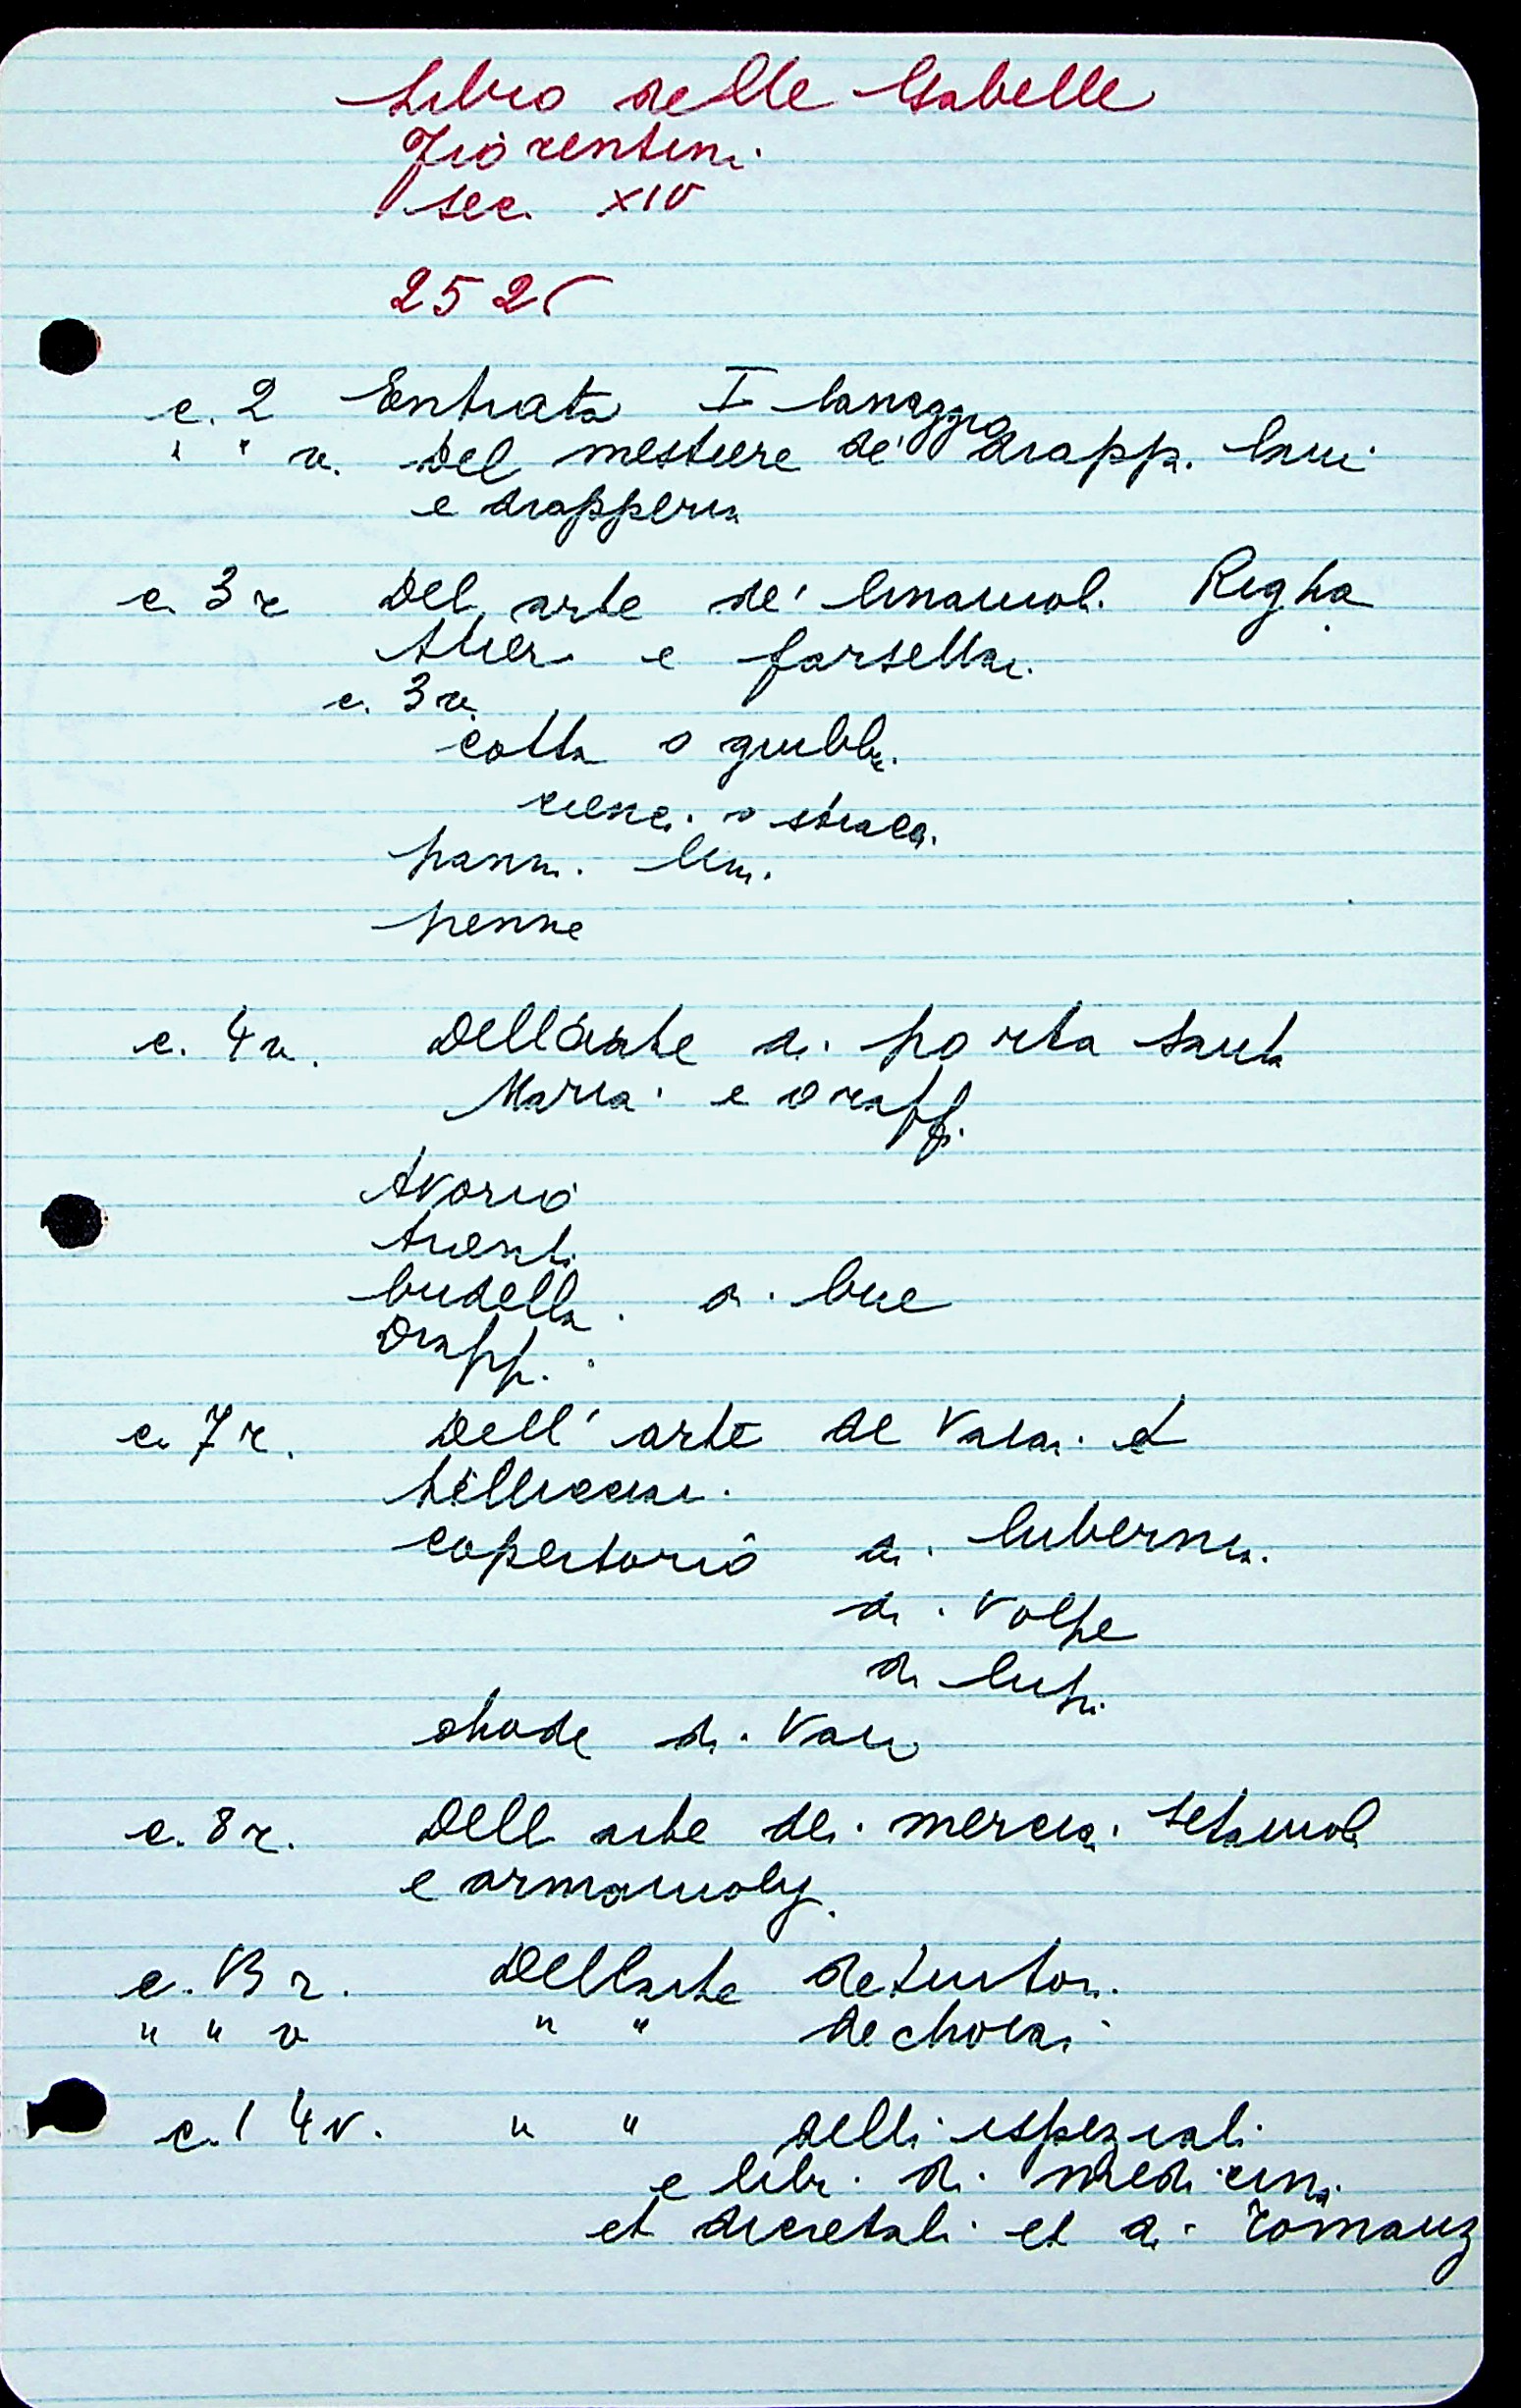 Libro delle Gabelle
Fiorentine
sec. XIV
2525
c. 2 Entrata I lanaggio
" " v. Del mestiere de' drapp. lani
e drapperia
c. 3 r Del arte de' linaiuol. Righa
ttier. e farsettai.
c. 3 v.
cotta o giubba.
cienci o stracci.
pann. lini.
penne
c. 4 v. Dell'arte di porta Santa
Maria e oraffi
Avorio
Arienti
budella di bue
Drappi
c. 7 r. Dell' arte de Vaiai et
pellicciai.
copertorio di luberna.
di Volpe
di lupi
chode di Vaio
c. 8 r. Dell arte dei merciai setaiuoli
e armaiuoly
c. 13 r. Dellarte detintori.
" " v " " dechoiai
c. 14 v. " " delli ispeziali
e libri di medicina
et dicretali et di romanz